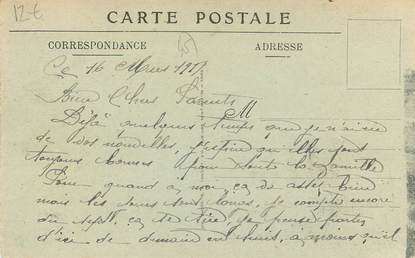 12 t
CARTE POSTALE
CORRESPONDANCE
ADRESSE
Ce 16 Mars
Bien Chers Parents
M
Déjà quelques temps que je n'ai eu
de vos nouvelles, j'espère qu'elles sont
toujours bonnes pour toute la famille
Pour quand a moi ça va assez bien
mais les jours sont longs, je compte encore
du ça te tire, je pense partir
d'ici de demain en huit, à moins qu'il